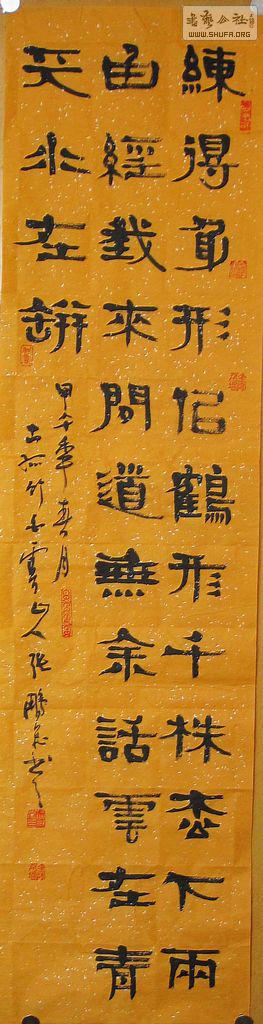 書藝公社
WWW.SHUFA.ORG
練得身形佀鶴形千株枀下兩
函經我來問道無余話雲在青
天水在缾
甲午年春月
于孤竹山人張鵬